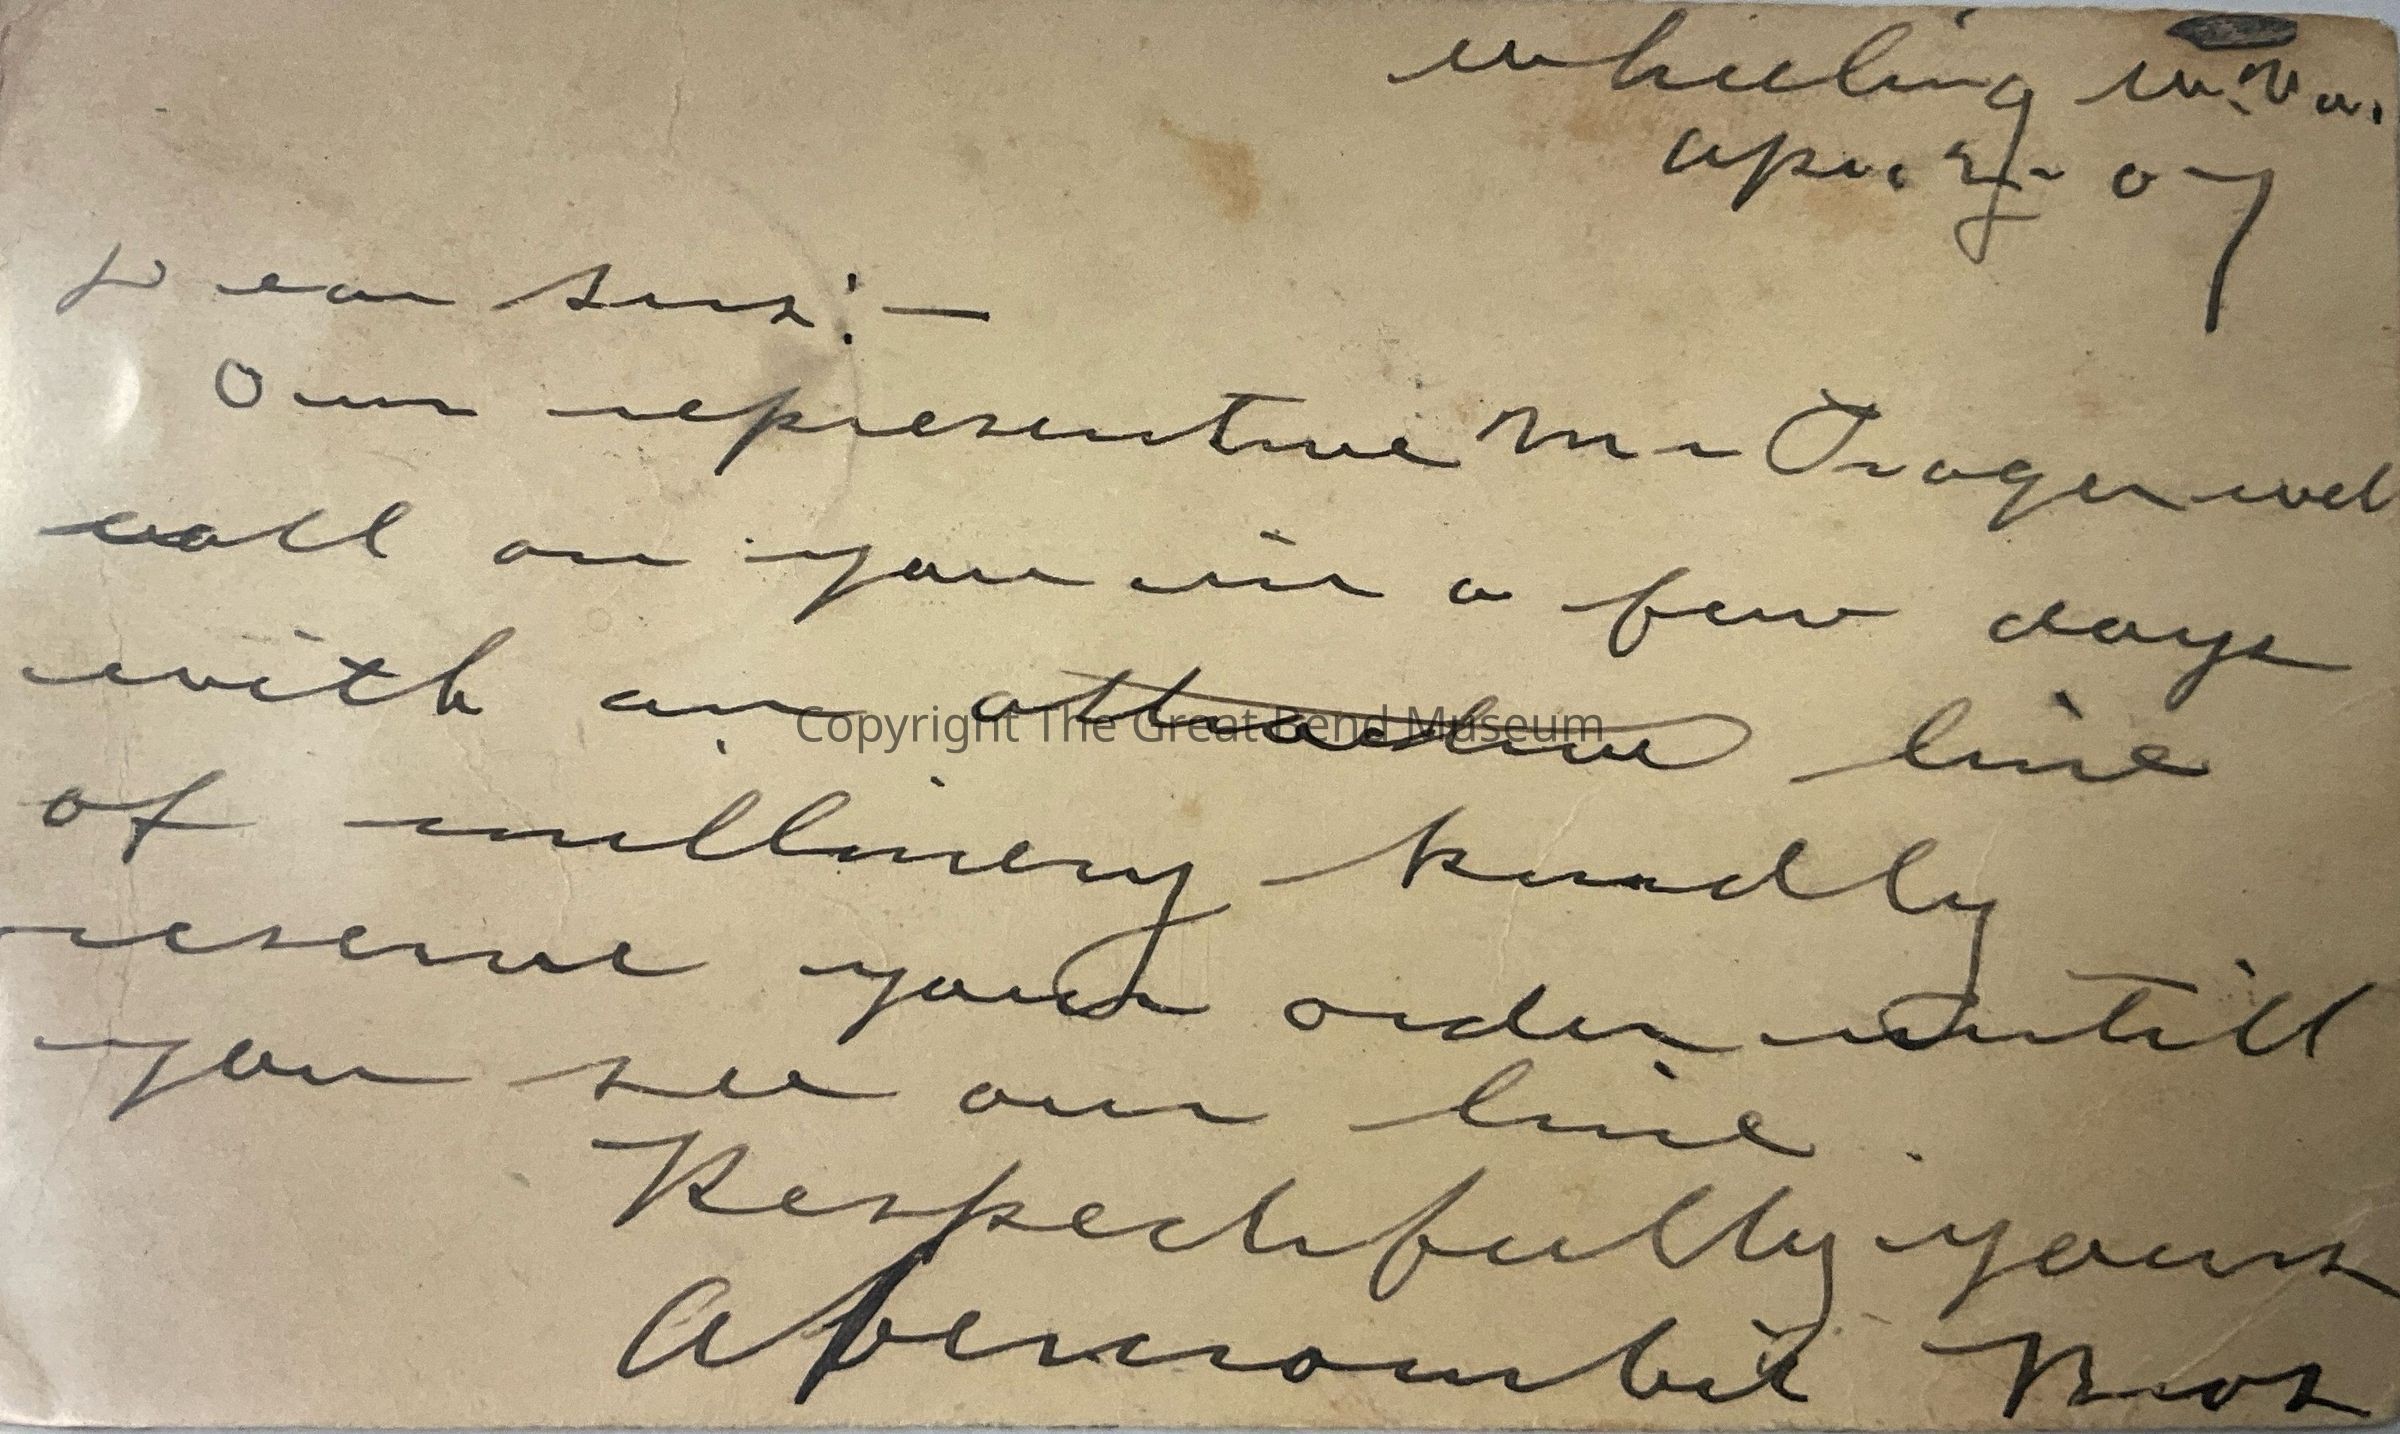 Wheeling W.Va.
Apr. 27 - 07
Dear Sirs: —
Our representive Mr Troger will
call on you in a few days
with an attractive line
Copyright The Great Bend Museum
of millinery kindly
reserve your order untill
you see our line.
Respectfully yours
Abercrombie Bros